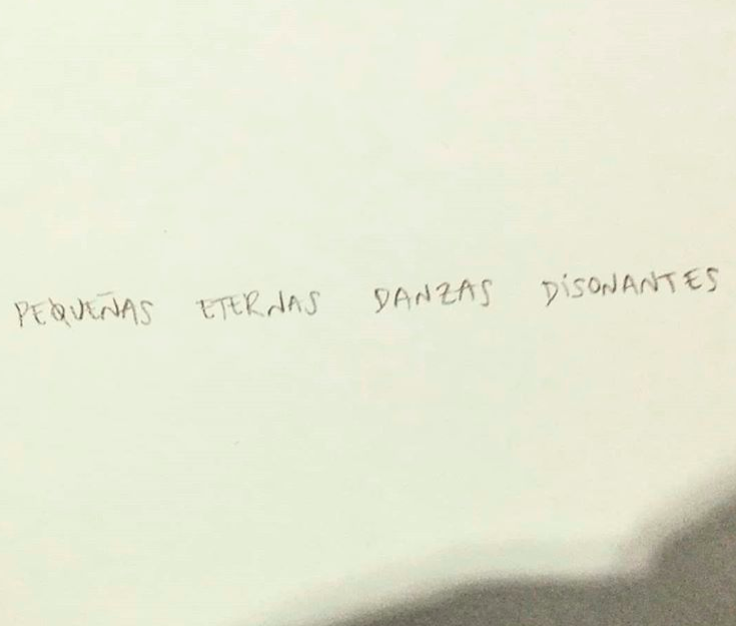 PEQUEÑAS ETERNAS DANZAS DiSONANTES